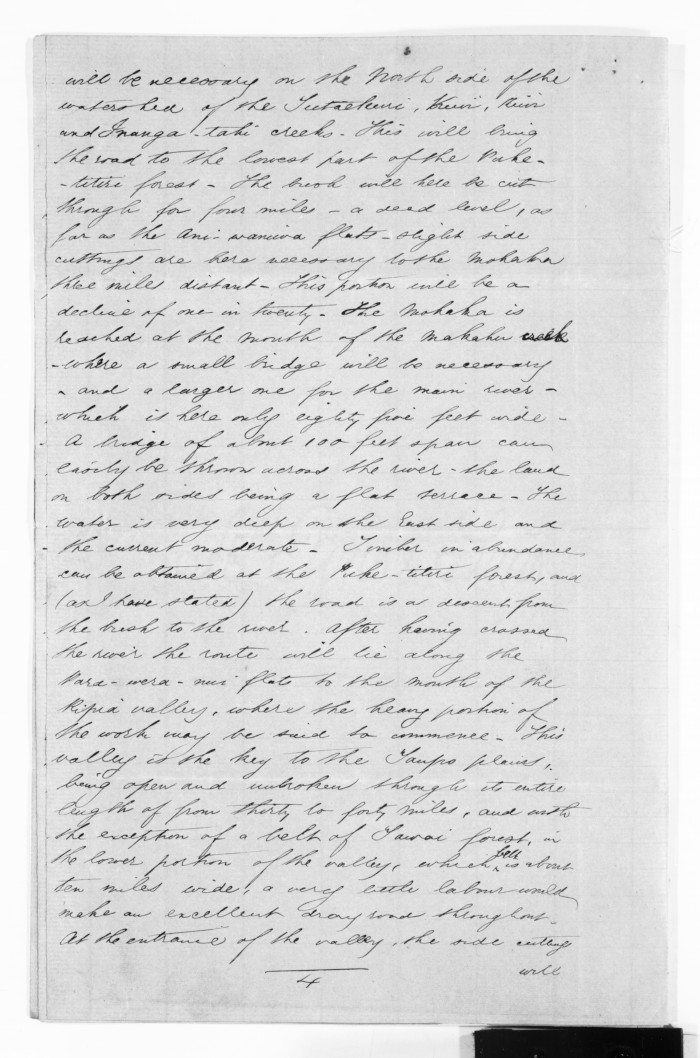 will be necessary on the North side of the
watershed of the Tutaekuri, Kiwi,
and Inanga-tahi creeks - This will bring
the road to the lowest part of the Puke-
-titiri forest - The bush will here be cut
through for four miles - a dead level, as
far as the Ani-waniwa flats - slight side
cuttings are here necessary to the Mohaka
three miles distant - This portion will be a
decline of one in twenty - The Mohaka is
reached at the mouth of the Makahu creek
-where a small bridge will be necessary
- and a larger one for the main river -
which is here only eighty five feet wide -
A bridge of about 100 feet span can
easily be thrown across the river - the land
on both sides being a flat terrace - The
water is very deep on the East side and
the current moderate - Timber in abundance
can be obtained at the Puke-titiri forest, and
(as I have stated) the road is a descent from
the bush to the river. After having crossed
the river the route will lie along the
Para-wera-nui flats to the mouth of the
Ripia valley, where the heavy portion of
the work may be said to commence - This
valley is the key to the Taupo plains,
being open and unbroken through its entire
length of from thirty to forty miles, and with
the exception of a belt of Tawai forest, in
the lower portion of the valley, which belt is about
ten miles wide, a very little labour would
make an excellent dray road throughout -
At the entrance of the valley, the side cuttings
will
4